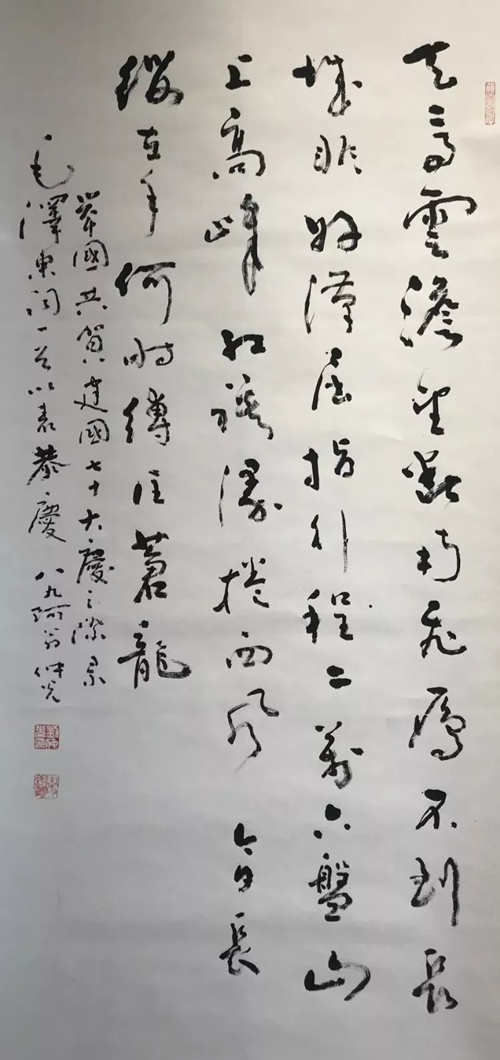 天高雲澹望斷南飛鴈不到長
城非好漢屈指行程二萬六盤山
上高峰紅旗漫捲西風 今日長
纓在手何時縛住蒼龍
舉國共賀建國七十大慶之際录
毛澤東詞一首以表恭慶 八九阿翁仲光